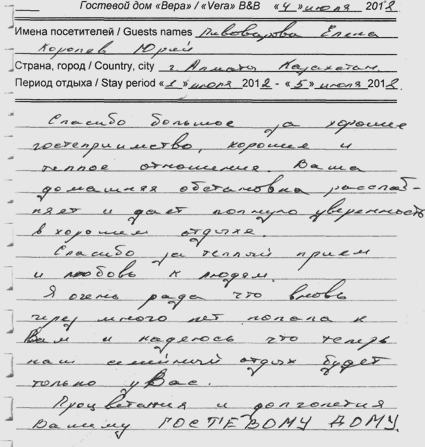 Гостевой дом «Вера» / «Vera» B&B «4» июля 2012
Имена посетителей / Guests names Пивоварова Елена
Королев Юрий
Страна, город / Country, city г. Алматы Казахстан.
Период отдыха / Stay period «1» июля 2012 - «5» июля 2012.
Спасибо большое за хорошее
гостеприимство, хорошее и
теплое отношение. Ваша
домашняя обстановка расслаб-
няет и дает полную уверенность
в хорошем отдыхе.
Спасибо за теплый прием
и любовь к людям.
Я очень рада что вновь
через много лет попала к
Вам и надеюсь что теперь
наш семейный отдых будет
только у Вас.
Процветания и долголетия
Вашему ГОСТЕВОМУ ДОМУ.